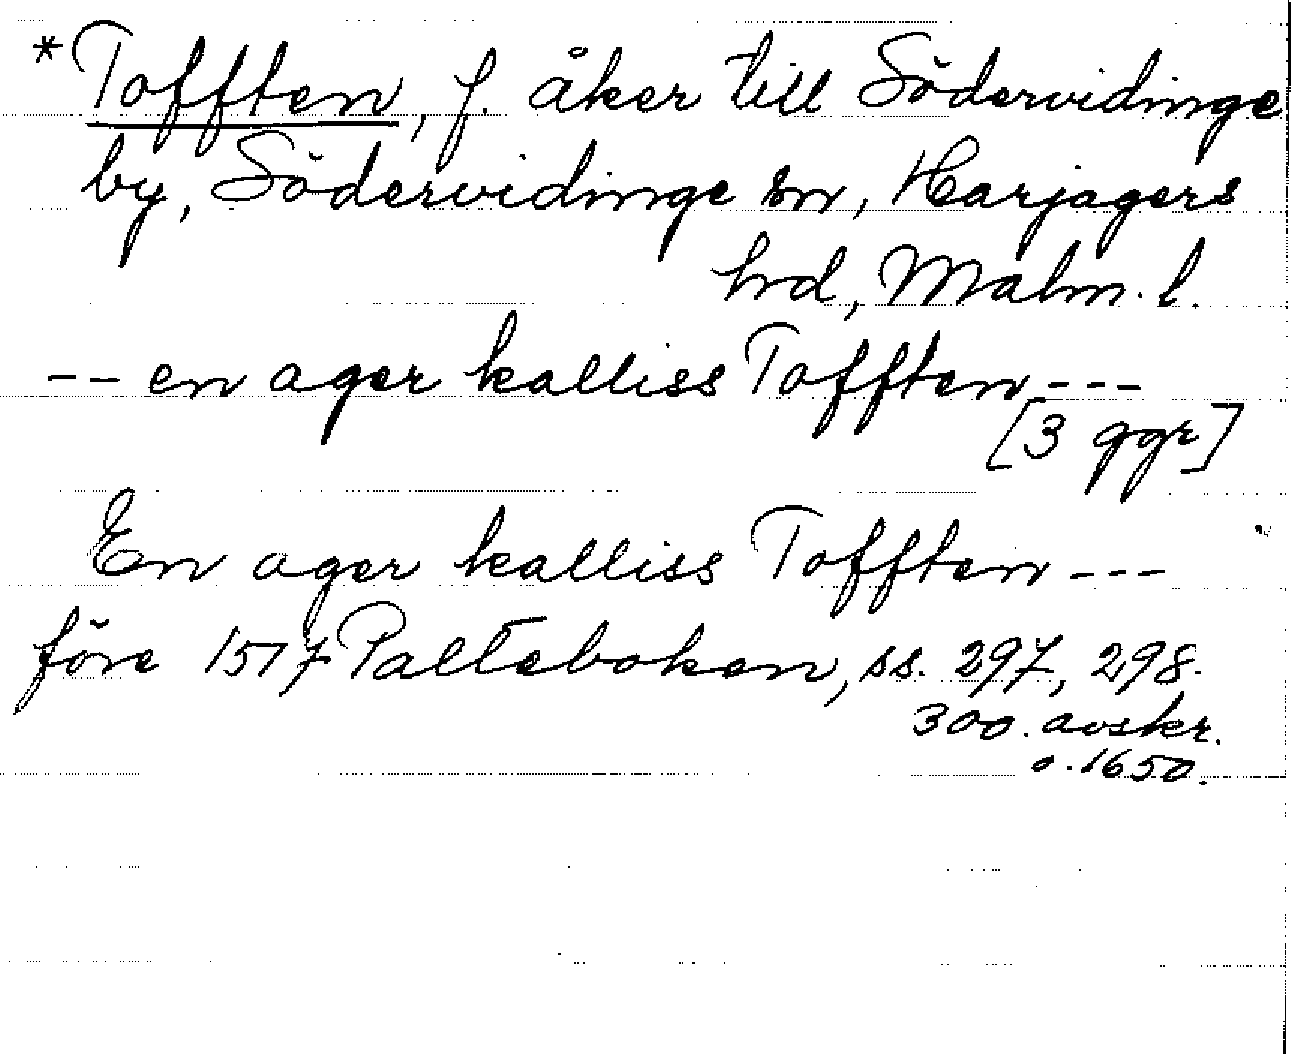 *Tofften, f. åker till Södervidinge
by, Södervidinge sn, Harjagers
hrd, Malm. l.
-- en ager kalliss Tofften ---
[3 ggr]
En ager kalliss Tofften ---
före 1517 Palteboken, ss. 297, 298.
300. avskr.
o. 1650.